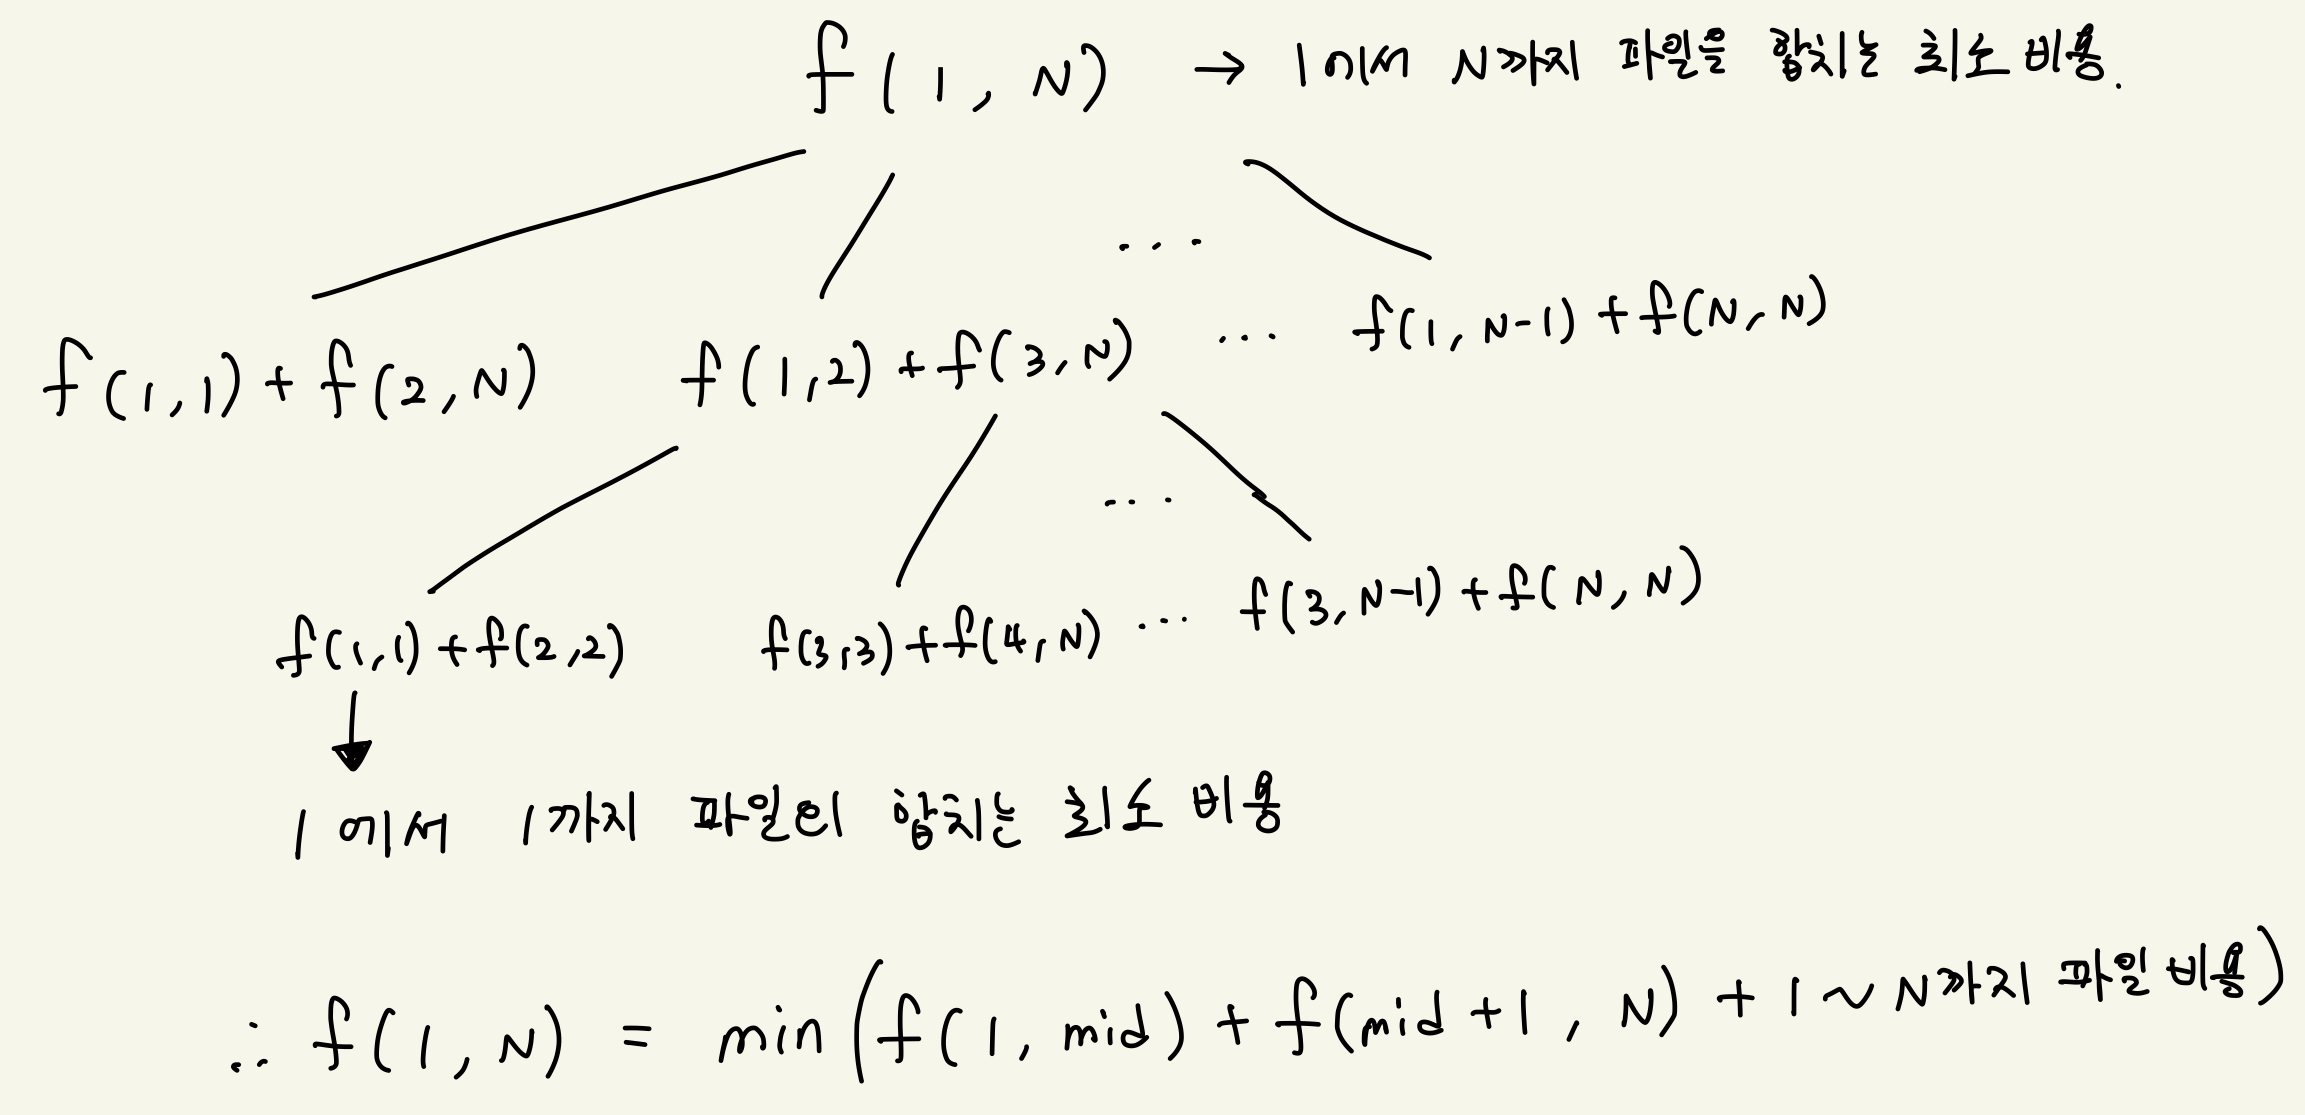 f(1, N) → 1에서 N까지 파일을 합치는 최소 비용.
...
f(1,1) + f(2,N) f(1,2) + f(3,N) ... f(1,N-1) + f(N,N)
...
f(1,1) + f(2,2) f(3,3) + f(4,N) ... f(3,N-1) + f(N,N)
1에서 1까지 파일의 합치는 최소 비용
∴ f(1, N) = min(f(1, mid) + f(mid+1, N) + 1~N까지 파일 비용)